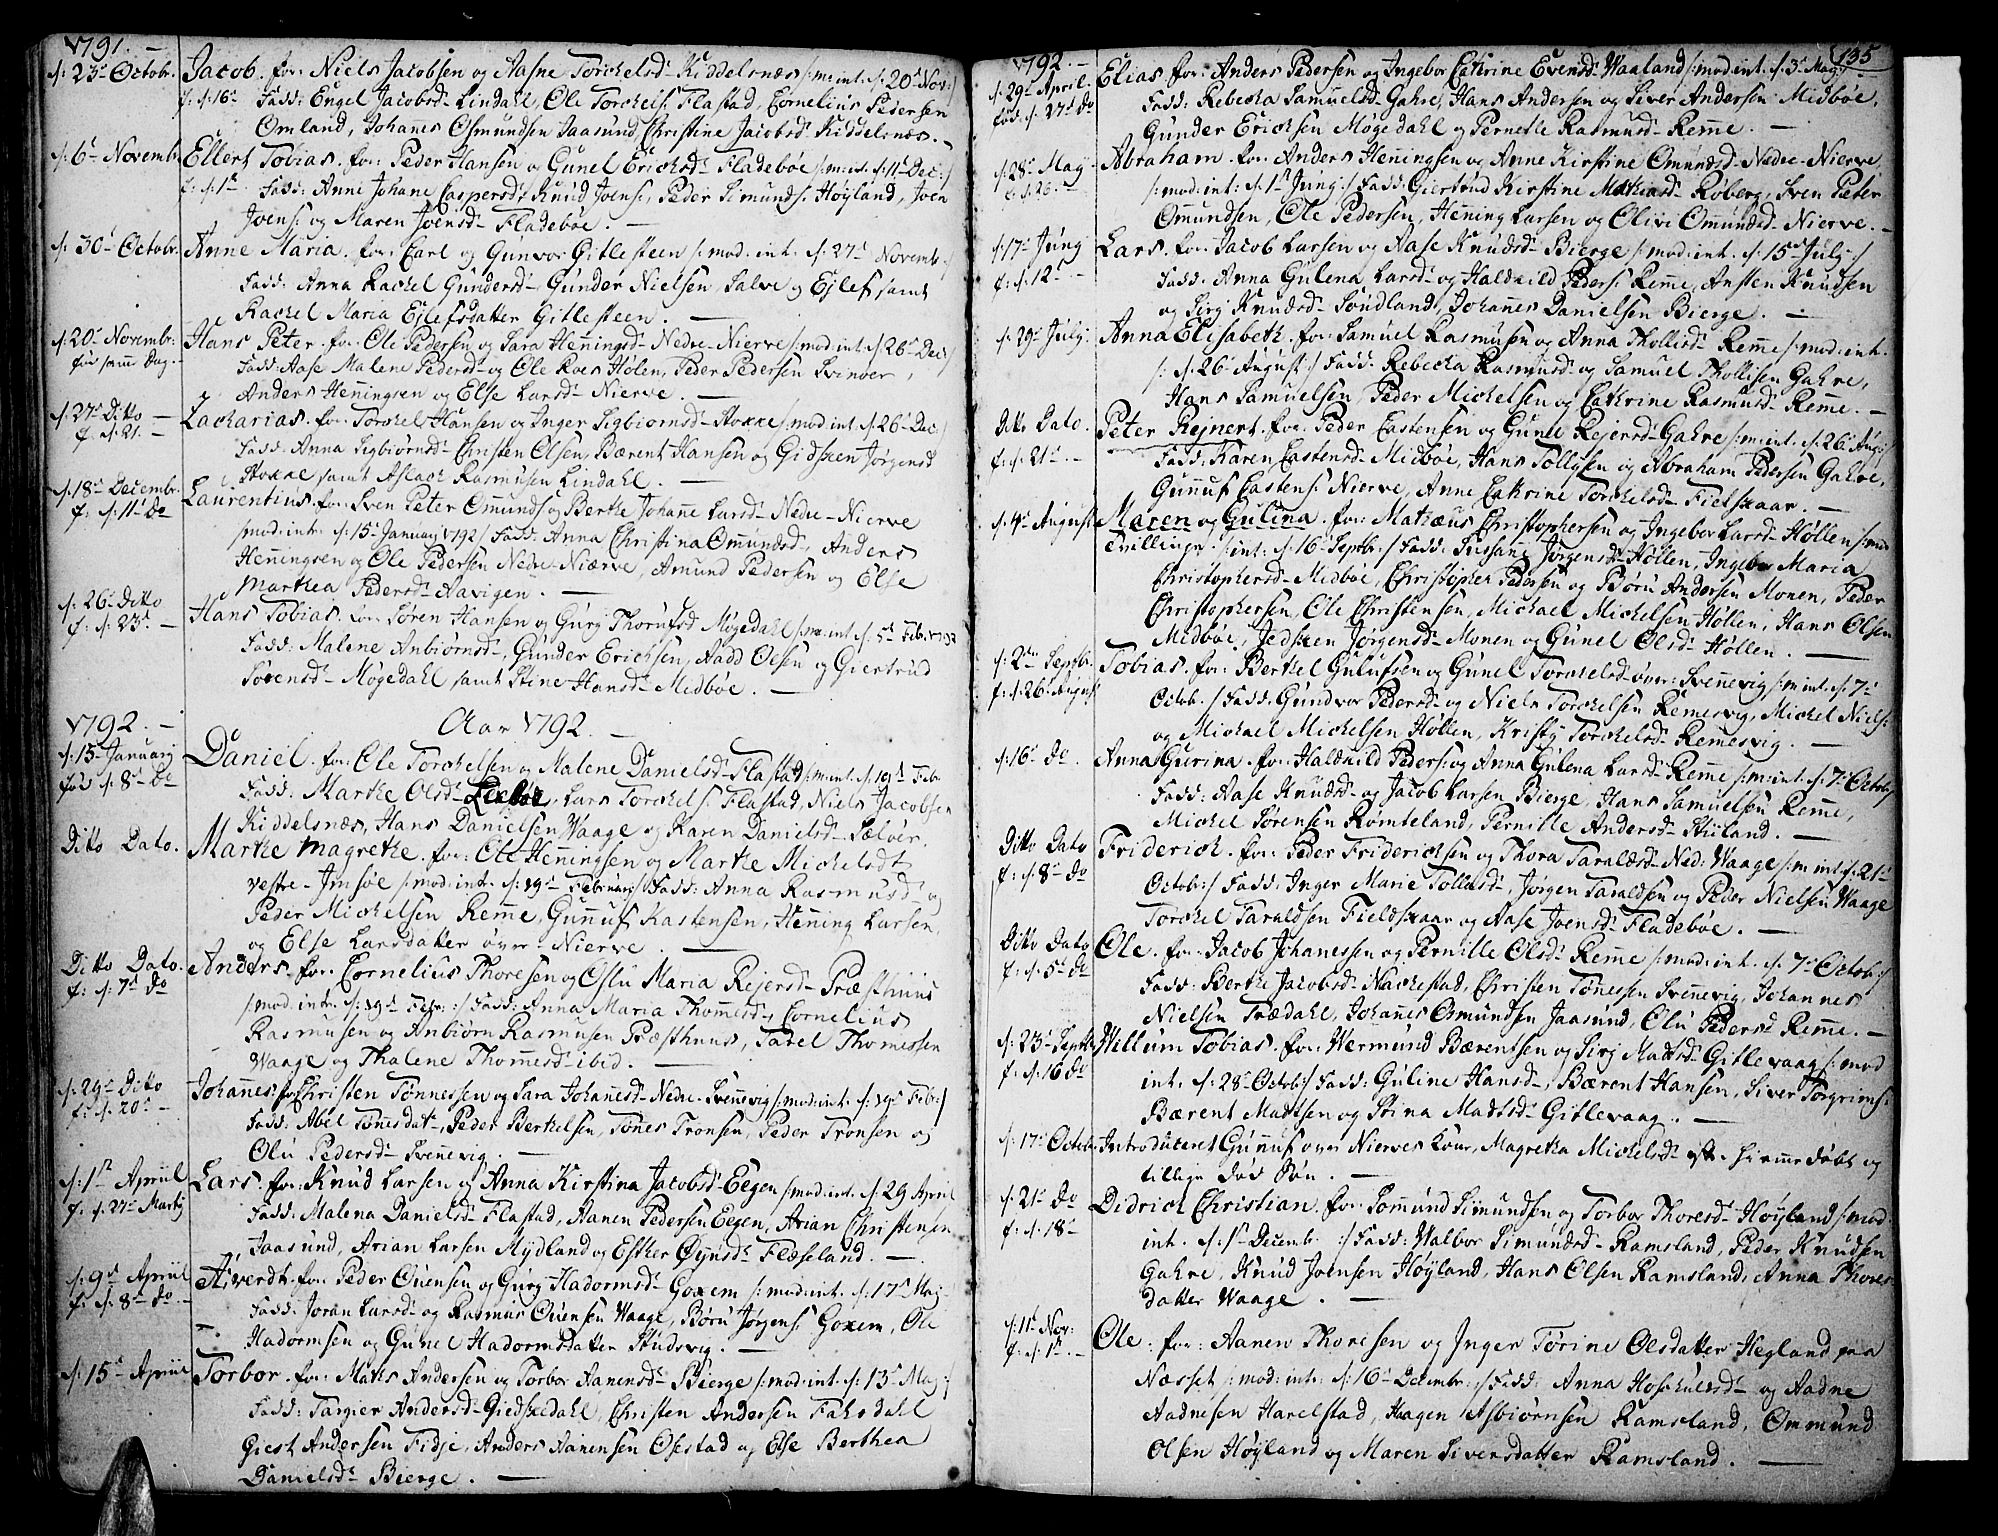 1791. –
d: 23de Octobr. Jacob. for: Niels Jacobsen og Aasne Torckelsd. Kiddelsnæs /: m: int. d: 20de Nov:/
f: d: 16de Fadd: Engel Jacobsd. Lindahl, Ole Torckels: Flastad, Cornelius Pedersen
Omland, Johannes Osmundsen Jaasund, Christine Jacobsd. Kiddelsnæs. –
d: 6te Novembr. Ellert Tobias. for: Peder Hansen og Gunel Ericksd. Fladebøe /: m: int. d: 11te Dec:/
f: d: 1ste Fadd: Anne Johane Caspersd. Knud Joens:, Peder Simunds: Høyland, Joen
Joens: og Maren Joensd. Fladebøe. –
d: 30te Octobr. Anne Maria. for: Carl og Gunvor Gitlesteen /: mod: int: d: 27de Novembr:/
Fadd: Anna Rachel Gundersd. Gunder Nielsen, Salve og Ejlef samt
Rachel Maria Ejlefsdatter Gitlesteen. –
d: 20de Novembr: Hans Peter. for: Ole Pedersen og Sara Henningsd. Nedre-Nierve /: mod: int. d: 26de Dec:/
fød samme Dag. – Fadd: Aase Malene Pedersd. og Ole Roes Hølen, Peder Pedersen Svinøer,
Anders Henningsen og Else Larsd. Nierve. –
d: 27de Ditto – Zacharias. for: Torckel Hansen og Inger Sigbiornsd. Stokke /: mod: int. d: 26de Dec:/
f. d. 21. – Fadd: Anna Sigbiørnsd. Christen Olsen, Bærent Hansen og Gidsken Jørgensd.
Stokke samt Aslach Rasmusen Lindahl. –
d: 18de Decembr. Laurentius. for: Sven Peter Omunds og Berthe Johanne Larsd. Nedre-Nierve
f: d: 11te Do /: mod: int. d: 15de Januarj 1792 :/ Fadd: Anna Christina Omundsd., Anders
Henningsen og Ole Pedersen Nedre-Niærve, Amund Pedersen og Else
Marthea Pedersd. Aavigen. –
d: 26de Ditto Hans Tobias. for: Søren Hansen og Gurj Thorufsd Møgedahl /: m: int d: 5te Feb: 1792
f: d: 23de – Fadd: Malene Anbiørnsd., Gunder Ericksen, Aadd Olsen og Giertrud
Sørensd. Møgedahl samt Stine Hansd. Midbøe. –
1792. – Aar 1792. –
d: 15de Januarj Daniel. for: Ole Torckelsen og Malene Danielsd. Flastad /: m: int. d: 19de Feb.
fød d: 8de Do Fadd: Marthe Olsd. Leeboe, Lars Torckels: Flastad, Niels Jacobsen
Kiddelsnæs, Hans Danielsen Vaage og Karen Danielsd. Sælvør.
Ditto Dato. Marthe Magrethe. for: Ole Henningsen og Marthe Mickelsdt
Vestre-Imsøe /: mod: int. d: 19de Februarj :/ Fadd: Anna Rasmusd. og
Peder Mickelsen Remme, Gunnuf Kastensen, Henning Larsen,
og Else Larsdatter over-Nierve. –
Ditto Dato. Anders. for: Cornelius Thoresen og Oslu Maria Rejersd. Præsthuus
f: d: 7de Do /: mod: int. d: 19de Febr: :/ Fadd: Anna Maria Thommesd., Cornelius
Rasmusen og Anbiørn Rasmusen Præsthuus, Tarel Thomessen
Waage og Thalene Thommesd. ibid. –
d: 29de Ditto Johannes. for: Christen Tønnessen og Sara Johannesd. Nedre-Svennevig /: mod: int: d: 19de Feb:/
f: d: 20de – Fadd: Abel Tønnesdat., Peder Berthelsen, Tønes Tronsen, Peder Tronsen og
Olu Pedersd. Svennevig. –
d: 1ste Apriil Lars. for: Knud Larsen og Anna Kirstina Jacobsd. Eegen /: mod: int. d: 29 April
f: d: 27de Martij Fadd: Malena Danielsd. Flastad, Aanen Pedersen Eegen, Arian Christensen
Jaasund, Arian Larsen Mydland og Esther Øynsd. Flæseland. –
d: 9de Apriil Aiverdt. for: Peder Ouensen og Gurj Hadormsd. Goxem /: mod: int. d: 17de Maj.
f: d: 8de do. – Fadd: Joran Larsd. og Rasmus Ouensen Waage, Børu Jørgens: Goxem, Ole
Hadormsen og Gunel Hadormsdatter Studsvig. –
d: 15de Apriil Torbor. for: Maths Andersen og Torbor Aanensd. Bierge /: mod: int. d: 13de Maj:/
Fadd: Targier Andersd. Giedskedahl, Christen Andersen Faksdahl
Giest Andersen Fidje, Anders Aanensen Øsestad og Else Berthea
Danielsd. Bierge. –
135
1792. –
d: 29de April. Elias. for: Anders Pedersen og Ingebor Cathrine Evensd. Waaland /: mod: int. d: 3de Maj:/
fød. d. 27de do Fadd: Rebecka Samuelsd. Gahre, Hans Andersen og Siver Andersen Midbøe,
Gunder Ericksen Møgedahl og Pernelle Rasmusd. Remme. –
d: 28de Maj Abraham. for: Anders Henningsen og Anne Kirstine Omundsd. Nedre-Nierve,
f. d. 26. – /: mod: int: d: 1ste Junj :/ Fadd: Giertrud Kirstine Mathiasd. Roberg, Sven Peter
Omundsen, Ole Pedersen, Henning Larsen og Olive Omundsd. Nierve. –
d: 17de Junj Lars. for: Jacob Larsen og Aase Knudsd. Bierge /: mod: int. d: 15de Julj :/
f: d. 12te – Fadd: Anna Gulena Larsd. og Haldvild Peders: Remme, Ansten Knudsen
og Sirj Knudsd. Sondland, Johannes Danielsen Bierge. –
d: 29de Julj Anna Elisabeth. for: Samuel Rasmusen og Anna Thollisd. Remme /: mod: int.
/: d: 26 August :/ Fadd: Rebecka Rasmusd. og Samuel Thollisen Gahre,
Hans Samuelsen, Peder Mickelsen og Cathrine Rasmusd. Remme. –
Ditto Dato. Peter Rejnert. for: Peder Castensen og Gunil Rejersd. Gahre /: m: int. d. 26 Aug:/
f: d. 21de. – Fadd: Karen Castensd. Midbøe, Hans Tollysen og Abraham Pedersen Gahre,
Gunnuf Castens: Nierve, Anne Cathrine Torckelsd. Fielskaar. –
d: 4de August Maren og Gulina. for: Mathæus Christophersen og Ingebor Larsd. Høllen /: mod
Tvillinge. /: int: d: 16 Septbr :/ Fadd: Sussane Jørgensd. Høllen, Ingebor Maria
Christophersd. Midbøe, Christopher Pedersen og Børu Andersen Monen, Peder
Christophersen, Ole Christensen, Mickael Mickelsen Høllen, Hans Olsen
Midbøe, Jedsken Jørgensd. Monen og Gunel Olsd. Høllen. –
d: 2den Septbr. Tobias. for: Berthel Gulufsen og Gunel Torckelsd. over: Svennevig /: m: int. d: 7de
f: d: 26 August Octob: :/ Fadd: Gundvor Pedersd. og Niels Torckelsen Remesvig, Mickel Niels:
og Mickael Mickelsen Høllen, Kristj Torckelsd. Remmesvig. –
d: 16de do. Anna Gurina. for: Haldvild Peders: og Anna Gulena Larsd. Remme /: m: int. d: 7de Octob:/
Fadd: Aase Knudsd. og Jacob Larsen Bierge, Hans Samuelsen Remme,
Mickel Sørensen Romteland, Pernille Andersd. Skiland. –
Ditto Dato Friderich. for: Peder Fridericksen og Thora Taraldsd. Ned: Waage /: m int. d: 21de
f: d: 8de do Octob: :/ Fadd: Inger Marie Tollisd., Jørgen Taraldsen og Peder Nielsen Waage
Torckel Taraldsen Fieldskaar og Aase Joensd. Fladebøe. –
Ditto Dato Ole. for: Jacob Johannessen og Pernille Olsd. Remme /: mod: int. d. 7de Octob:/
f: d: 5te do Fadd: Berthe Jacobsd. Nackestad, Christen Tønessen Svennevig, Johannes
Nielsen Trædahl, Johannes Osmundsen Jaasund, Olu Pedersd. Remme. –
d: 23de Septbr Willum Tobias. for: Wermund Bærentsen og Sirj Madtsd. Gitlevaag /: mod
f: d: 16 do int. d: 28de Octob: :/ Fadd: Guline Hansd., Bærent Hansen, Siver Torgrims:
Bærent Madtsen og Stina Madtsd. Gitlevaag. –
d: 17de Octobr Introduceret Gunnuf over Nierves Kone, Magretha Mickelsd. efter hiemmedøbt og
tillige død Søn. –
d: 21de do Didrich Christian. for: Sommund Simundsen og Torbor Thoresd. Høyland /: mod.
f: d: 18de int. d: 1ste Decemb. :/ Fadd: Walbor Simundsd. Ramsland, Peder Knudsen
Gahre, Knud Joensen Høyland, Hans Olsen Ramsland, Anna Thores
datter Waage. –
d: 11te Nov: Ole. for: Aanen Thoresen og Inger Torine Olsdatter Hegland paa
f: d: 1ste. – Næsset /: mod: int: d: 16te Decembr: :/ Fadd: Anna Hoschuldsd. og Aadne
Aadnesen Harelstad, Haagen Asbiørnsen Ramsland, Ommund
Olsen Høyland og Maren Siversdatter Ramsland. –